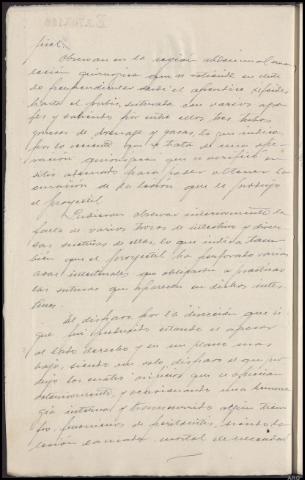 pital.
Observan en la región abdominal una
incisión quirurgica que se extiende en sentido
perpendicular desde el apendice xifoides
hasta el pubis, suturada con varios agra-
fes y saliendo por entre ellos tres tubos
gruesos de drenage y gasas, lo que indica
por lo reciente que se trata de una ope-
ración quirurgica que se verificó en
dicho para poder obtener la
curación de la lesion que le produjo
el proyectil
Pudieron observar interiormente la
falta de varios trozos de intestino y diver-
sas suturas de ellos, lo que indica tam-
bién que el proyectil ha perforado varias
asas intestinales que obligaron a practicar
las suturas que aparecen en dichos intes-
tinos.
El disparo por la dirección que si-
gue fué producido estando el agresor
al lado derecho y en un plano mas
bajo, siendo un solo disparo el que pro-
dujo los cuatro orificios que se aprecian
exteriormente, y ocasionando una hemorra-
gia interna y transcurrido algún tiem-
po, fenomenos de peritonitis, siendo la
lesión causada mortal de necesidad